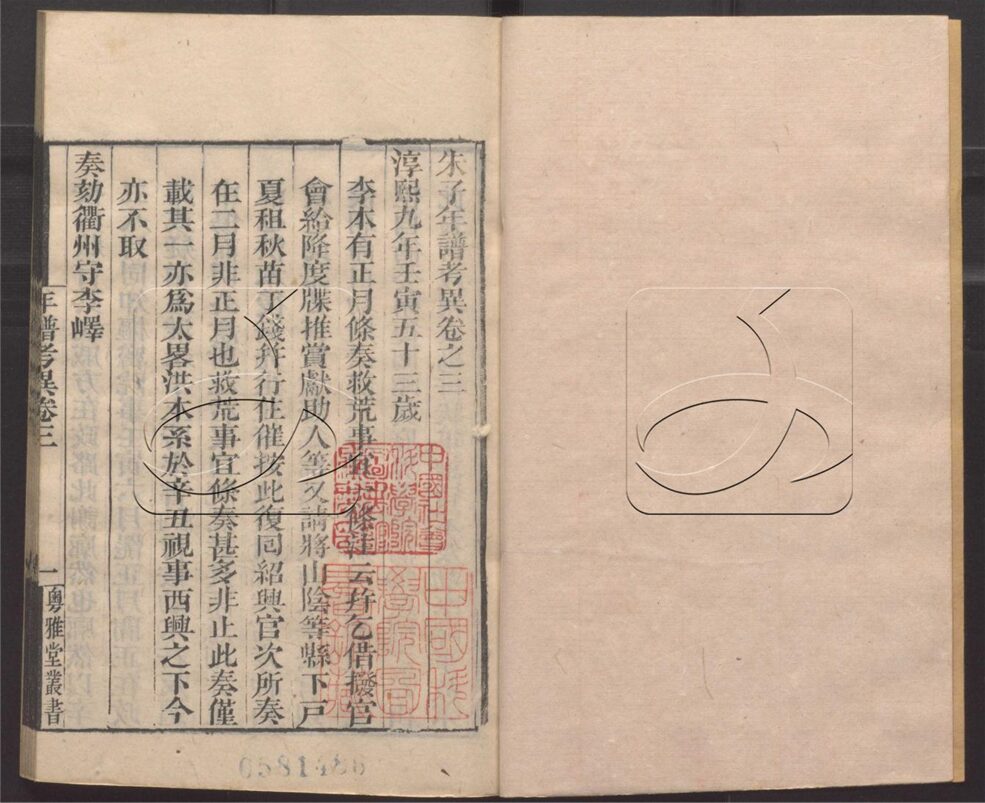 朱子年譜考異卷之三
淳熙九年壬寅五十三歲
李本有正月條奏救荒事條注云幷乞借撥官
會給降度牒推賞獻助人等又請將山陰等縣下戶
夏租秋苗丁錢幷行住催按此復回紹興官次所奏
在二月非正月也救荒事宜條奏甚多非止此奏僅
載其一亦爲太畧洪本系於辛丑視事西興之下今
亦不取
奏劾衢州守李嶧
年譜考異卷三
一
粵雅堂叢書
0581486